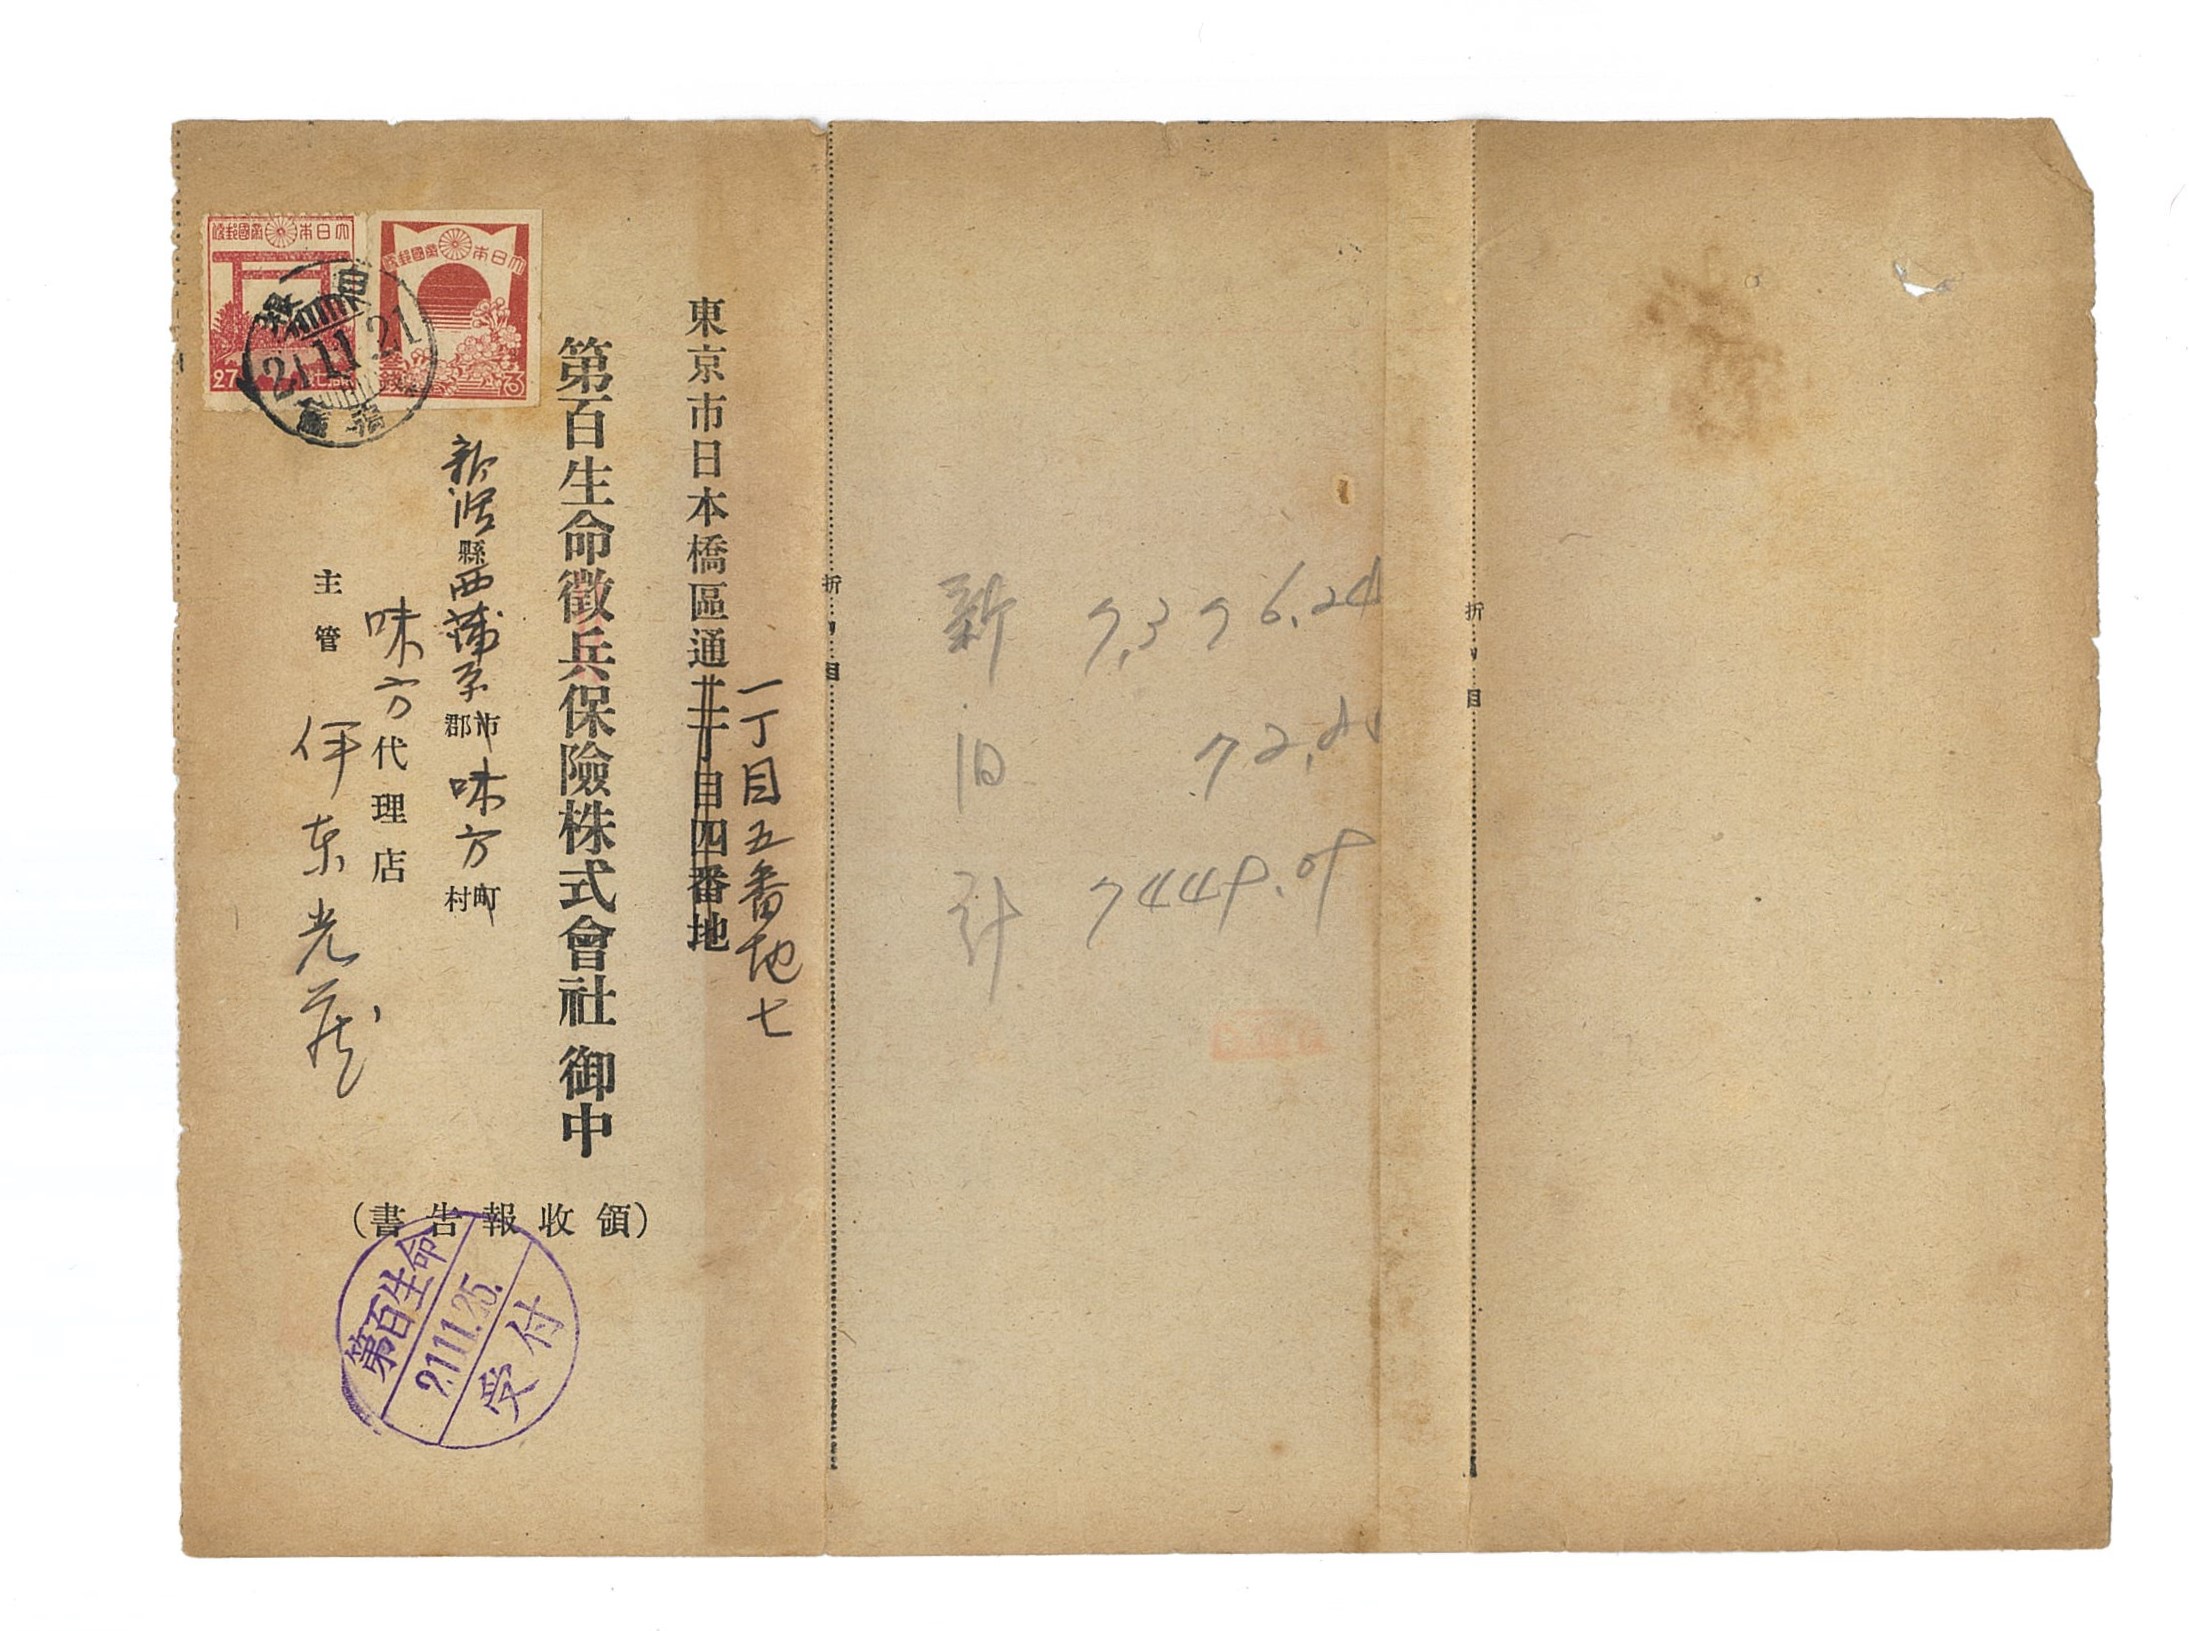 東京市日本橋區通三丁目四番地
一丁目五番地七
第百生命徵兵保險株式會社 御中
新潟縣西蒲原郡市 味方村町
味方代理店
主管 伊東光蔵
(領收報告書)
大日本帝國郵便
27
大日本帝國郵便
21.11.21
第百生命
21.11.25.
受付
折り目
新 7,376.24
旧
計 7449.09
折り目